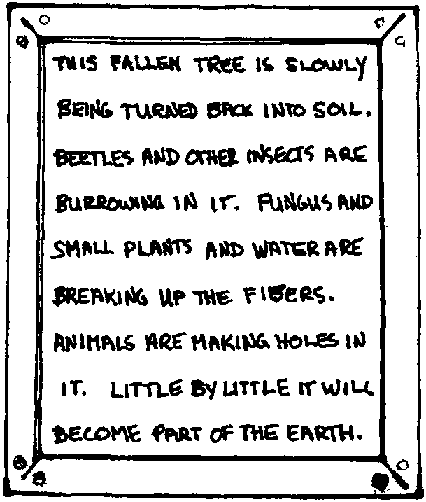 THIS FALLEN TREE IS SLOWLY
BEING TURNED BACK INTO SOIL.
BEETLES AND OTHER INSECTS ARE
BURROWING IN IT. FUNGUS AND
SMALL PLANTS AND WATER ARE
BREAKING UP THE FIBERS.
ANIMALS ARE MAKING HOLES IN
IT. LITTLE BY LITTLE IT WILL
BECOME PART OF THE EARTH.